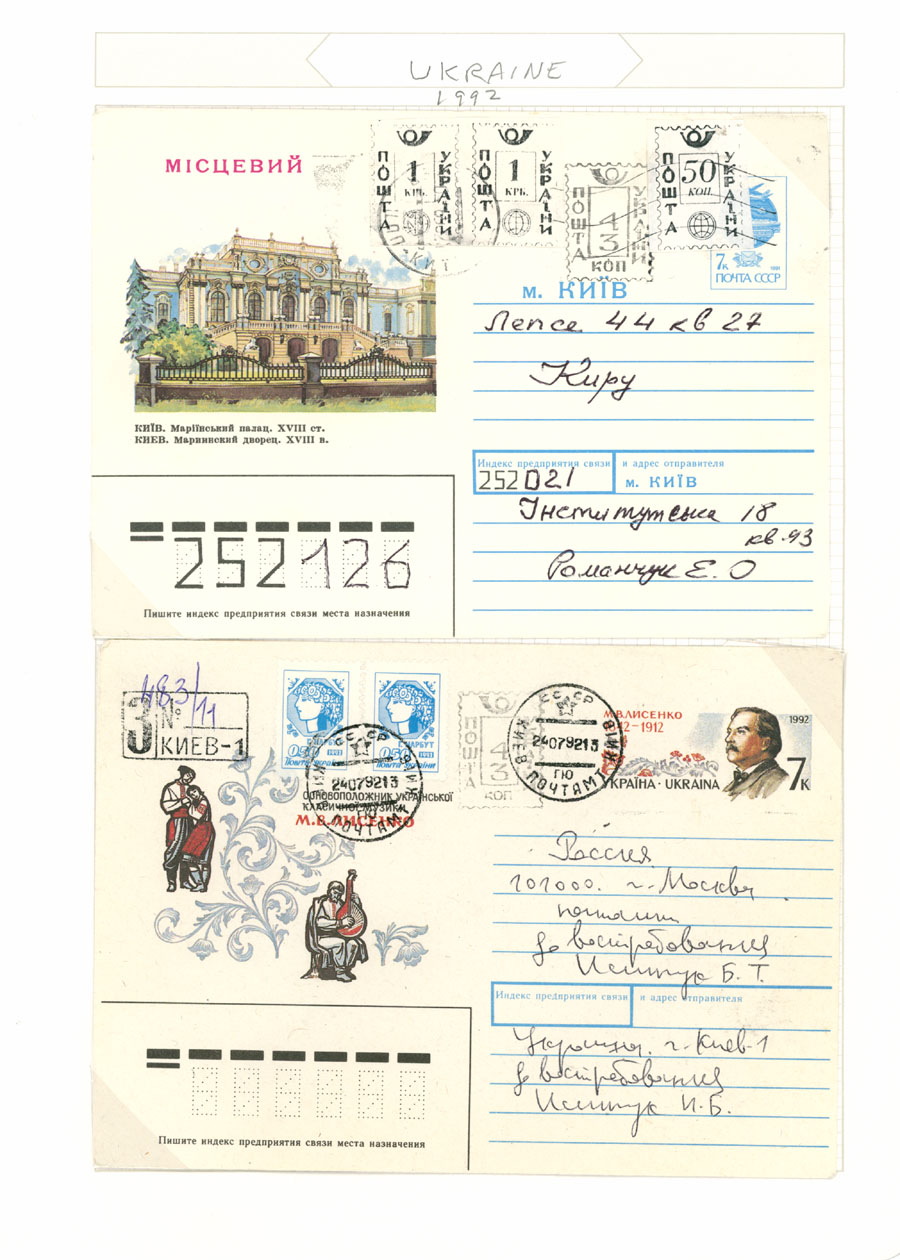 UKRAINE
1992
МІСЦЕВИЙ
ПОШТА 1 КРБ. УКРАЇНИ
ПОШТА 1 КРБ. УКРАЇНИ
ПОШТА 43 КОП УКРАЇНИ
ПОШТА 50 КОП. УКРАЇНИ
7к
ПОЧТА СССР
м. КИЇВ
Лепсе 44 кв 27
Киру
КИЇВ. Маріїнський палац. XVIII ст.
КИЕВ. Мариинский дворец. XVIII в.
Индекс предприятия связи и адрес отправителя
252021 м. КИЇВ
Інститутська 18
кв. 93
Романчук Е. О
252126
Пишите индекс предприятия связи места назначения
483/11
З № КИЕВ-1
0,50 1992
Пошта України
Г. НАРБУТ
0,50 1992
Пошта України
СССР
24079213
КИЕВ ПОЧТАМТ
ПОШТА 43 КОП
СССР
КИЕВ ПОЧТАМТ КИЇВ
24079213
ГЮ
М.В.ЛИСЕНКО
1842-1912
1992
УКРАЇНА · UKRAINA 7К
ОСНОВОПОЛОЖНИК УКРАЇНСЬКОЇ
КЛАСИЧНОЇ МУЗИКИ
М.В.ЛИСЕНКО
Россия
101000. г. Москва
почтамт
до востребования
Б. Т.
Индекс предприятия связи и адрес отправителя
Украина. г. Киев-1
до востребования
И. Б.
Пишите индекс предприятия связи места назначения